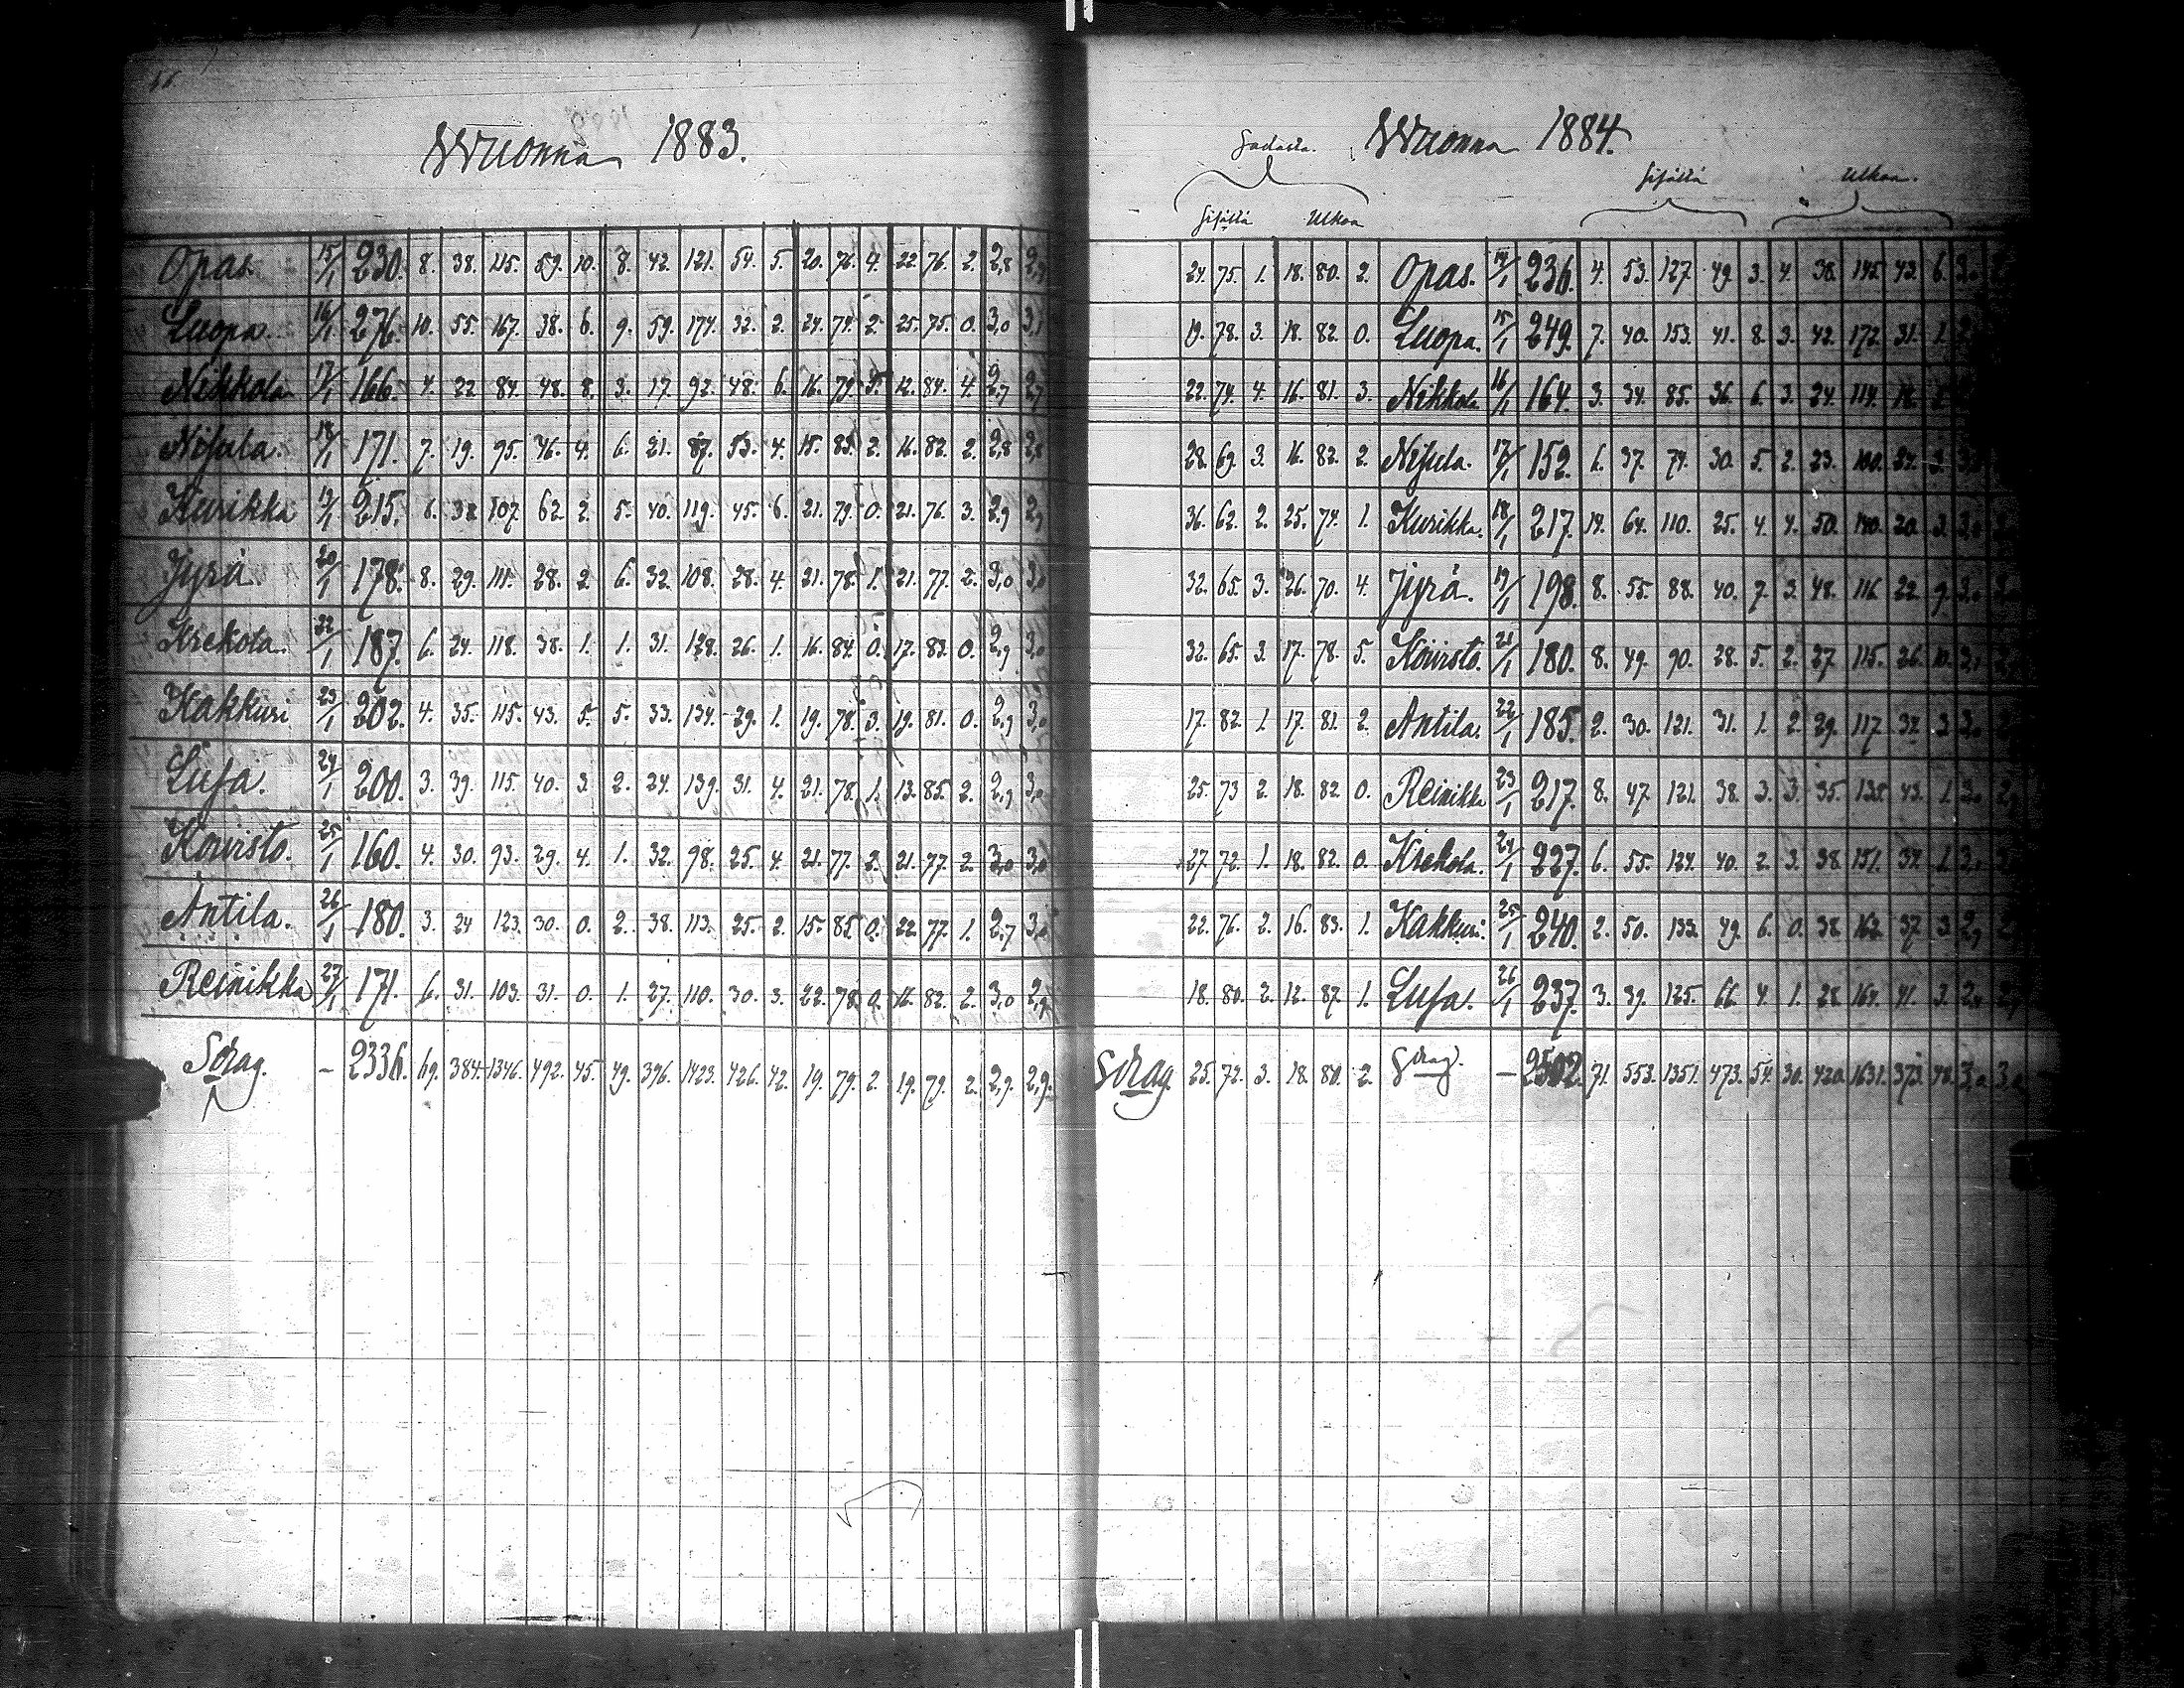 Wuonna 1883.
Opas. 15/1 230. 8. 38. 115. 59. 10. 8. 42. 121. 54. 5. 20. 76. 4. 22. 76. 2. 2,8 2,9
Luopa. 16/1 276. 10. 55. 167. 38. 6. 9. 59. 174. 32. 2. 24. 74. 2. 25. 75. 0. 3,0 3,1
Nikkola 17/1 166. 4. 22 84. 48. 8. 3. 17. 92. 48. 6. 16. 79. 5. 12. 84. 4. 2,7 2,7
Nisula. 18/1 171. 7. 19. 95. 46. 4. 6. 21. 87. 53. 4. 15. 83. 2. 16. 82. 2. 2,8 2,8
Kurikka 19/1 215. 6. 38 107. 62. 2. 5. 40. 119. 45. 6. 21. 79. 0. 21. 76. 3. 2,9 2,9
Jyrä 20/1 178. 8. 29. 111. 28. 2. 6. 32. 108. 28. 4. 21. 78. 1. 21. 77. 2. 3,0 3,0
Krekola. 22/1 187. 6. 24. 118. 38. 1. 1. 31. 128. 26. 1. 16. 84. 0. 17. 83. 0. 2,9 3,0
Kakkuri 23/1 202. 4. 35. 115. 43. 5. 5. 33. 134. 29. 1. 19. 78. 3. 19. 81. 0. 2,9 3,0
Lusa. 24/1 200. 3. 39. 115. 40. 3. 2. 24. 139. 31. 4. 21. 78. 1. 13. 85. 2. 2,9 3,0
Koivisto. 25/1 160. 4. 30. 93. 29. 4. 1. 32. 98. 25. 4. 21. 77. 2. 21. 77. 2. 3,0 3,0
Antila. 26/1 180. 3. 24 123. 30. 0. 2. 38. 113. 25. 2. 15. 85. 0. 22. 77. 1. 2,7 3,0
Reinikka 27/1 171. 6. 31. 103. 31. 0. 1. 27. 110. 30. 3. 22. 78. 0. 16. 82. 2. 3,0 2,9
Sörag. – 2336. 69. 384. 1346. 492. 45. 49. 396. 1423. 426. 42. 19. 79. 2. 19. 79. 2. 2,9. 2,9.
Sadasta. Wuonna 1884.
Sisältä Ulkoa.
Sisältä Ulkoa
24. 75. 1. 18. 80. 2. Opas. 14/1 236. 4. 53. 127. 49. 3. 4. 38. 145. 43. 6.
19. 78. 3. 18. 82. 0. Luopa. 15/1 249. 7. 40. 153. 41. 8. 3. 42. 172. 31. 1.
22. 74. 4. 16. 81. 3. Nikkola 16/1 164. 3. 34. 85. 36. 6. 3. 24. 114. 18.
28. 69. 3. 16. 82. 2. Nisula. 17/1 152. 6. 37. 74. 30. 5. 2. 23. 100. 24. 3.
36. 62. 2. 25. 74. 1. Kurikka. 18/1 217. 14. 64. 110. 25. 4. 4. 50. 140. 20. 3. 3,0
32. 65. 3. 26. 70. 4. Jyrä. 19/1 198. 8. 55. 88. 40. 7. 3. 48. 116 22. 9. 3,0
32. 65. 3. 17. 78. 5. Koivisto. 21/1 180. 8. 49. 90. 28. 5. 2. 27 115. 26. 10.
17. 82. 1. 17. 81. 2. Antila. 22/1 185. 2. 30. 121. 31. 1. 2. 29. 117 34. 3 3,0
25. 73 2. 18. 82. 0. Reinikka 23/1 217. 8. 47. 121. 38. 3. 3. 35. 135. 43. 1. 3,0
27. 72. 1. 18. 82. 0. Krekola. 24/1 227. 6. 55. 124. 40. 2. 3. 38. 151. 34. 1. 3,0
22. 76. 2. 16. 83. 1. Kakkuri. 25/1 240. 2. 50. 133. 49. 6. 0. 38. 162. 37. 3. 2,9
18. 80. 2. 12. 87. 1. Lusa. 26/1 237. 3. 39. 125. 66. 4. 1. 28. 164. 41. 3. 2,9
Sörag. 25. 72. 3. 18. 80. 2. Sörag. – 2502. 71. 553. 1351. 473. 54. 30. 420. 1631. 373. 48. 3,0 3,0